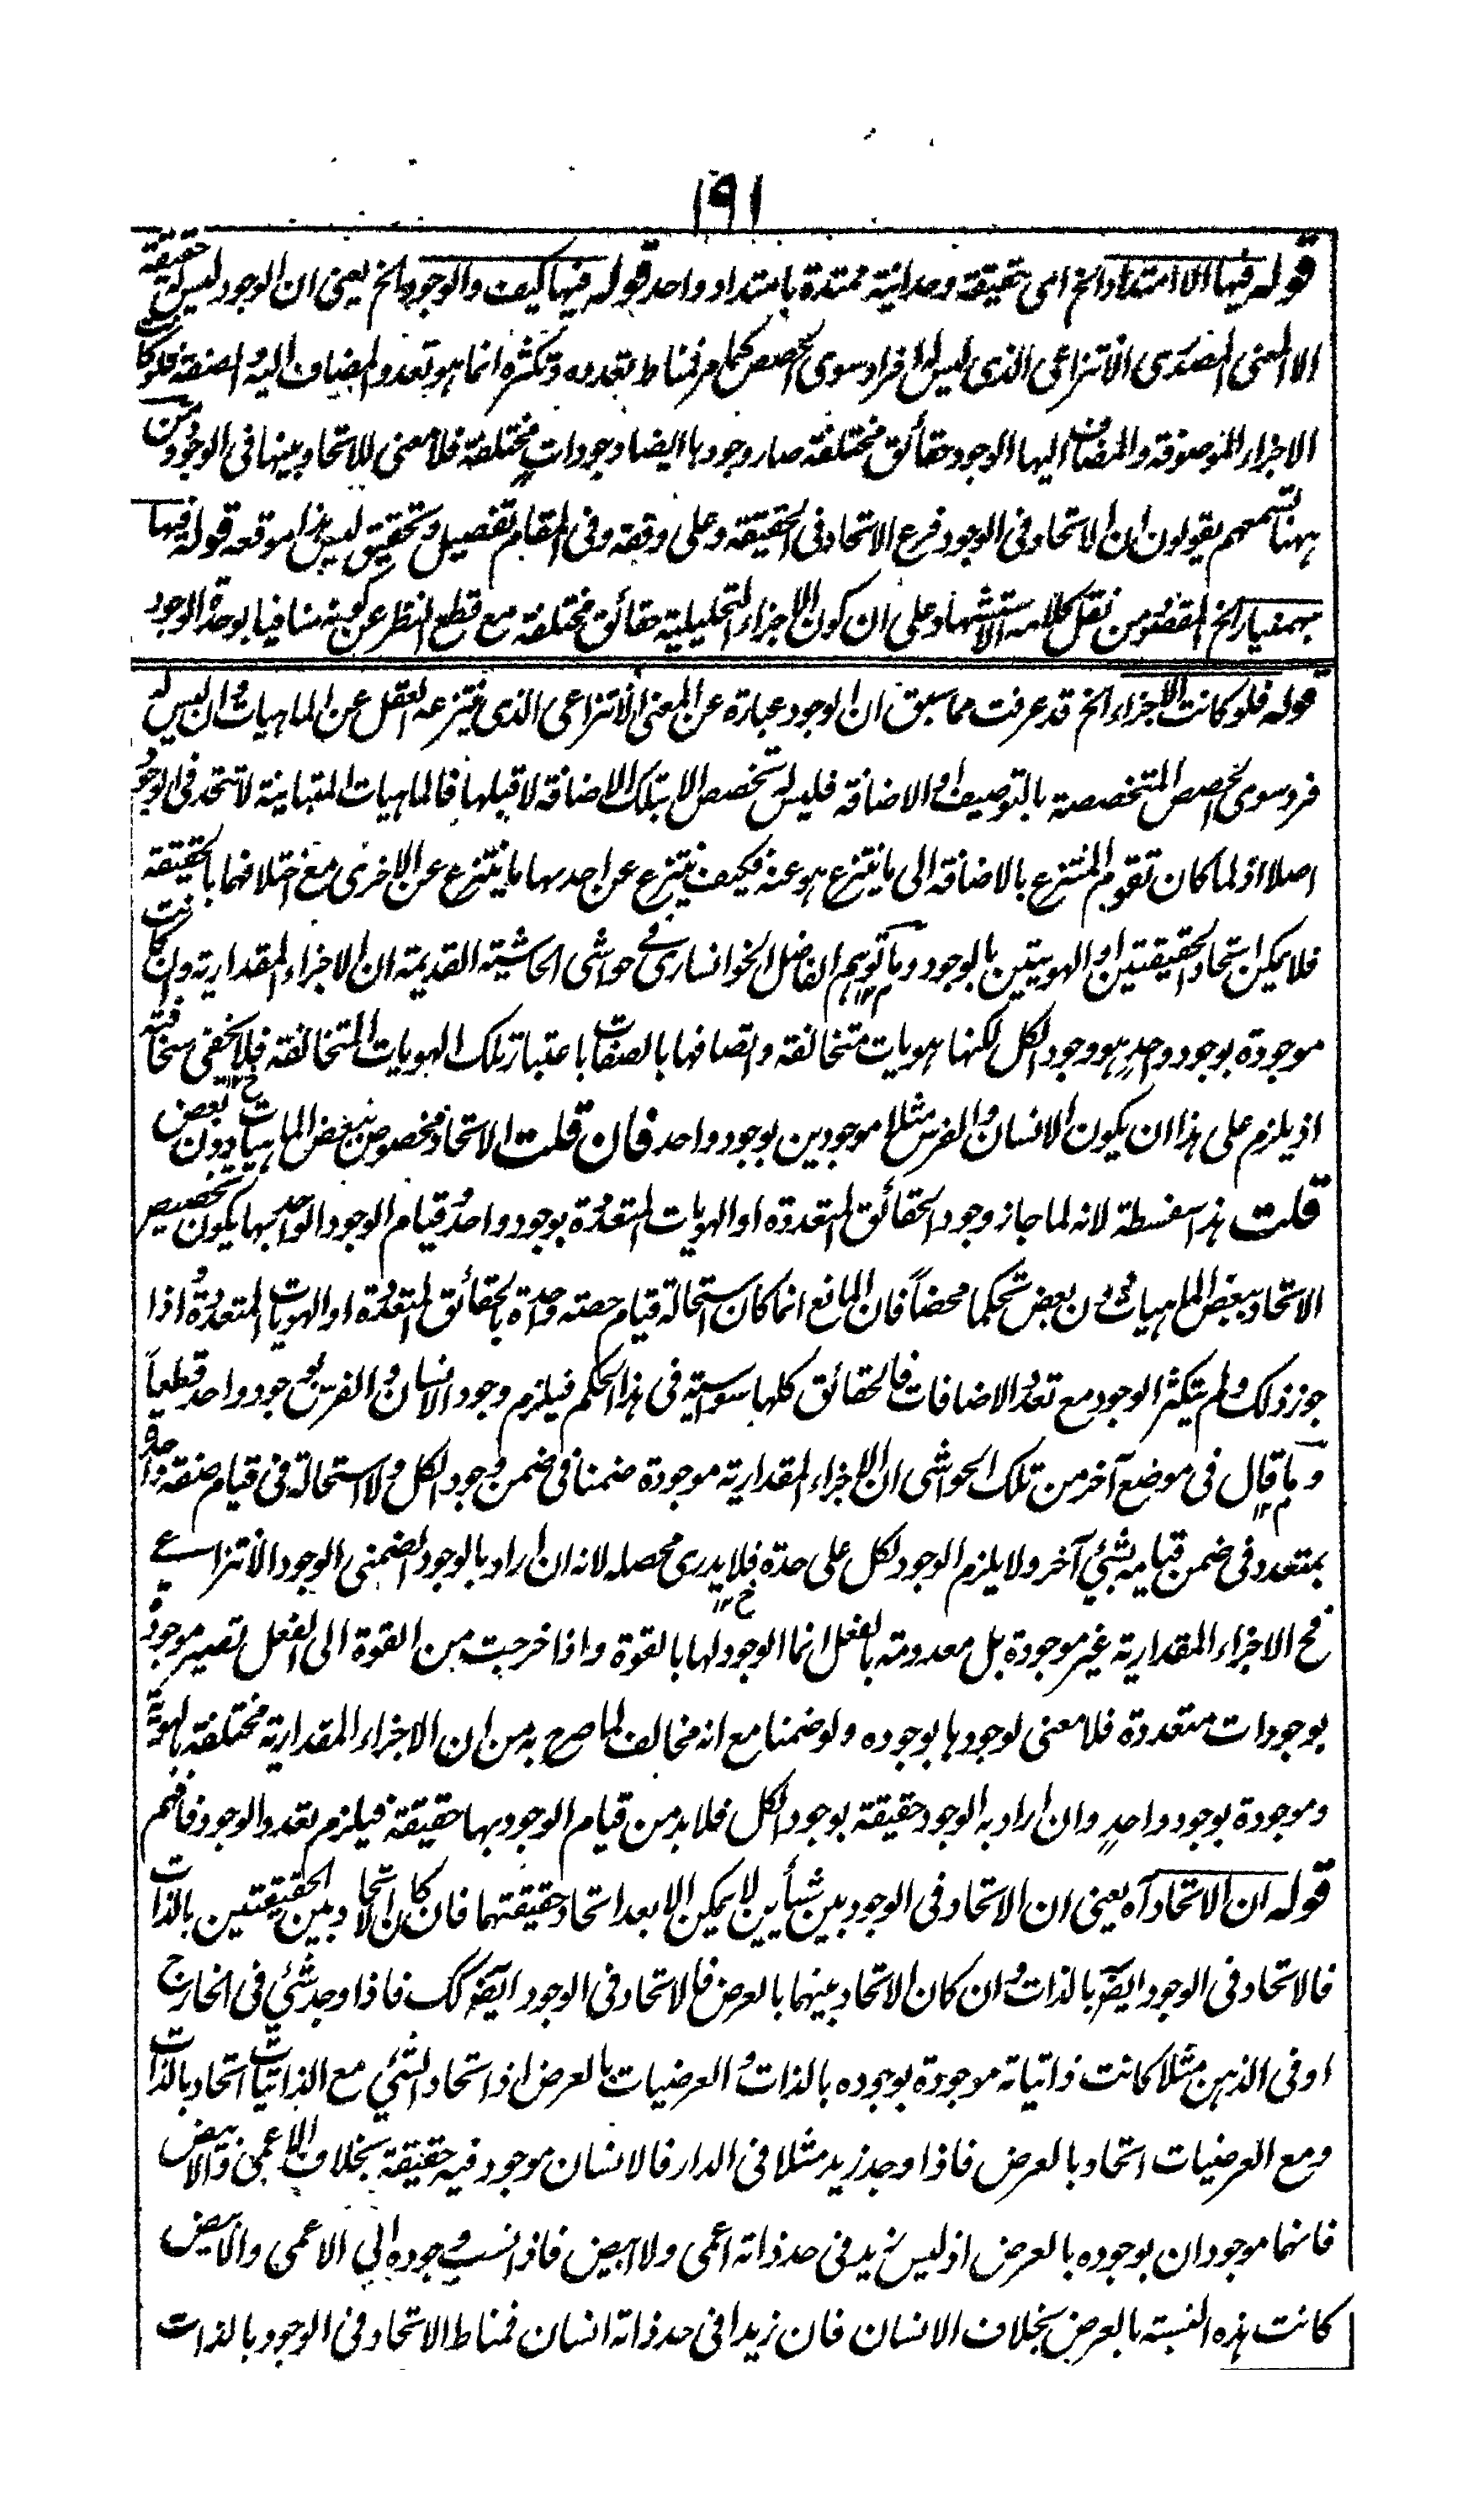 ١٩١
قوله فيها الا امتداد الخ اى حقيقة وحدانية ممتدة بامتداد واحد قوله فيها كيف والوجود الخ يعنى ان الوجود ليس حقيقة
الا المعنى المصدرى الانتزاعى الذى ليس له افراد سوى الحصص كما مر فمناط تعدده وتكثره انما هو تعدد المضاف اليه او صفته فلو كا
الاجزاء الموصوفة والمضاف اليها الوجود حقائق مختلفة صار وجودها ايضا وجودات مختلفة فلا معنى للاتحاد بينها فى الوجود ومن
ههنا تسمعهم يقولون ان الاتحاد فى الوجود فرع الاتحاد فى الحقيقة وعلى وفقه وفى المقام تفصيل وتحقيق ليس هذا موقعه قوله فيها
بهمنيار الخ المقصود من نقل كلامه الاستشهاد على ان كون الاجزاء التحليلية حقائق مختلفة مع قطع النظر عن كونه منافيا بوحدة الوجود
قوله فلو كانت الاجزاء الخ قد عرفت مما سبق ان الوجود عبارة عن المعنى الانتزاعى الذى ينتزعه العقل عن الماهيات وان ليس له
فرد سوى الحصص المتخصصة بالتوصيف او الاضافة فليس له تخصص الا بتلك الاضافة لا قبلها فالماهيات المتباينة لا تتحد فى الوجود
اصلا اذ لما كان تقوم المنتزع بالاضافة الى ما ينتزع هو عنه فكيف ينتزع عن احدىها ما ينتزع عن الاخرى مع اختلافهما بالحقيقة
فلا يمكن اتحاد الحقيقتين او الهويتين بالوجود وما توهم الفاضل الخوانسارى فى حواشى الحاشية القديمة ان الاجزاء المقدارية وان كانت
موجودة بوجود واحد هو وجود الكل لكنها هويات متخالفة واتصافها بالصفات باعتبار تلك الهويات المتخالفة فلا يخفى سخافته
اذ يلزم على هذا ان يكون الانسان والفرس مثلا موجودين بوجود واحد فان قلت الاتحاد مخصوص ببعض الماهيات دون بعض
قلت هذا سفسطة لانه لما جاز وجود الحقائق المتعددة او الهويات المتعددة بوجود واحد وقيام الوجود الواحد بها يكون تخصيص
الاتحاد ببعض الماهيات دون بعض تحكما محضاً فان المانع انما كان استحالة قيام حصته واحدة بالحقائق المتعددة او الهويات المتعددة واذا
جوز ذلك ولم يتكثر الوجود مع تعدد الاضافات فالحقائق كلها سواسية فى هذا الحكم فيلزم وجود الانسان والفرس بوجود واحد قطعاً
وما قال فى موضع آخر من تلك الحواشى ان الاجزاء المقدارية موجودة ضمنا فى ضمن وجود الكل ولا استحالة فى قيام صفة واحدة
بمتعدد فى ضمن قيامه بشئ آخر ولا يلزم الوجود لكل على حدة فلا يدرى محصله لانه ان اراد بالوجود الضمنى الوجود الانتزاعى
فح الاجزاء المقدارية غير موجودة بل معدومة بالفعل انما الوجود لها بالقوة واذا خرجت من القوة الى الفعل تصير موجودة
بوجودات متعددة فلا معنى لوجودها بوجوده ولو ضمنا مع انه مخالف لما صرح به من ان الاجزاء المقدارية مختلفة بالهوية
وموجودة بوجود واحد وان اراد به الوجود حقيقة بوجود الكل فلا بد من قيام الوجود بها حقيقة فيلزم تعدد الوجود فافهم
قوله ان الاتحاد آه يعنى ان الاتحاد فى الوجود بين شيأين لا يمكن الا بعد اتحاد حقيقتهما فان كان الاتحاد بين الحقيقتين بالذات
فالاتحاد فى الوجود ايضا بالذات وان كان الاتحاد بينهما بالعرض فالاتحاد فى الوجود ايضا كك فاذا وجد شئ فى الخارج
او فى الذهن مثلا كانت ذاتياته موجودة بوجوده بالذات والعرضيات بالعرض اذ اتحاد الشئ مع الذاتيات اتحاد بالذات
ومع العرضيات اتحاد بالعرض فاذا وجد زيد مثلا فى الدار فالانسان موجود فيه حقيقة بخلاف الاعمى والابيض
فانهما موجودان بوجوده بالعرض اذ ليس زيد فى حد ذاته اعمى ولا ابيض فاذا نسب وجوده الى الاعمى والابيض
كانت هذه النسبة بالعرض بخلاف الانسان فان زيدا فى حد ذاته انسان فمناط الاتحاد فى الوجود بالذات